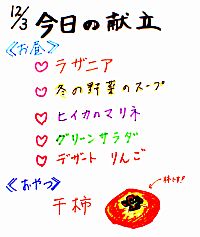 12/3 今日の献立
《お昼》
♡ ラザニア
♡ 冬の野菜のスープ
♡ ヒイカのマリネ
♡ グリーンサラダ
♡ デザート りんご
《おやつ》
干柿